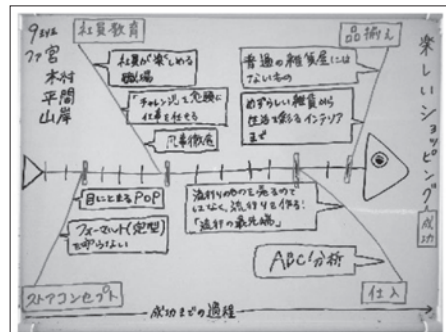 社員教育
品揃え
宮
木村
平間
山岸
社員が楽しめる
職場
「チャレンジ」を念頭に
仕事を任せる
普通の雑貨屋には
ないもの
めずらしい雑貨から
生活を彩るインテリア
まで
楽しいショッピング
成功
目にとまるPOP
フォーマット(定型)
を守らない
流行りのものを売るので
はなく、流行りを作る!
「流行の最先端」
ABC分析
ストアコンセプト
仕入
成功までの過程